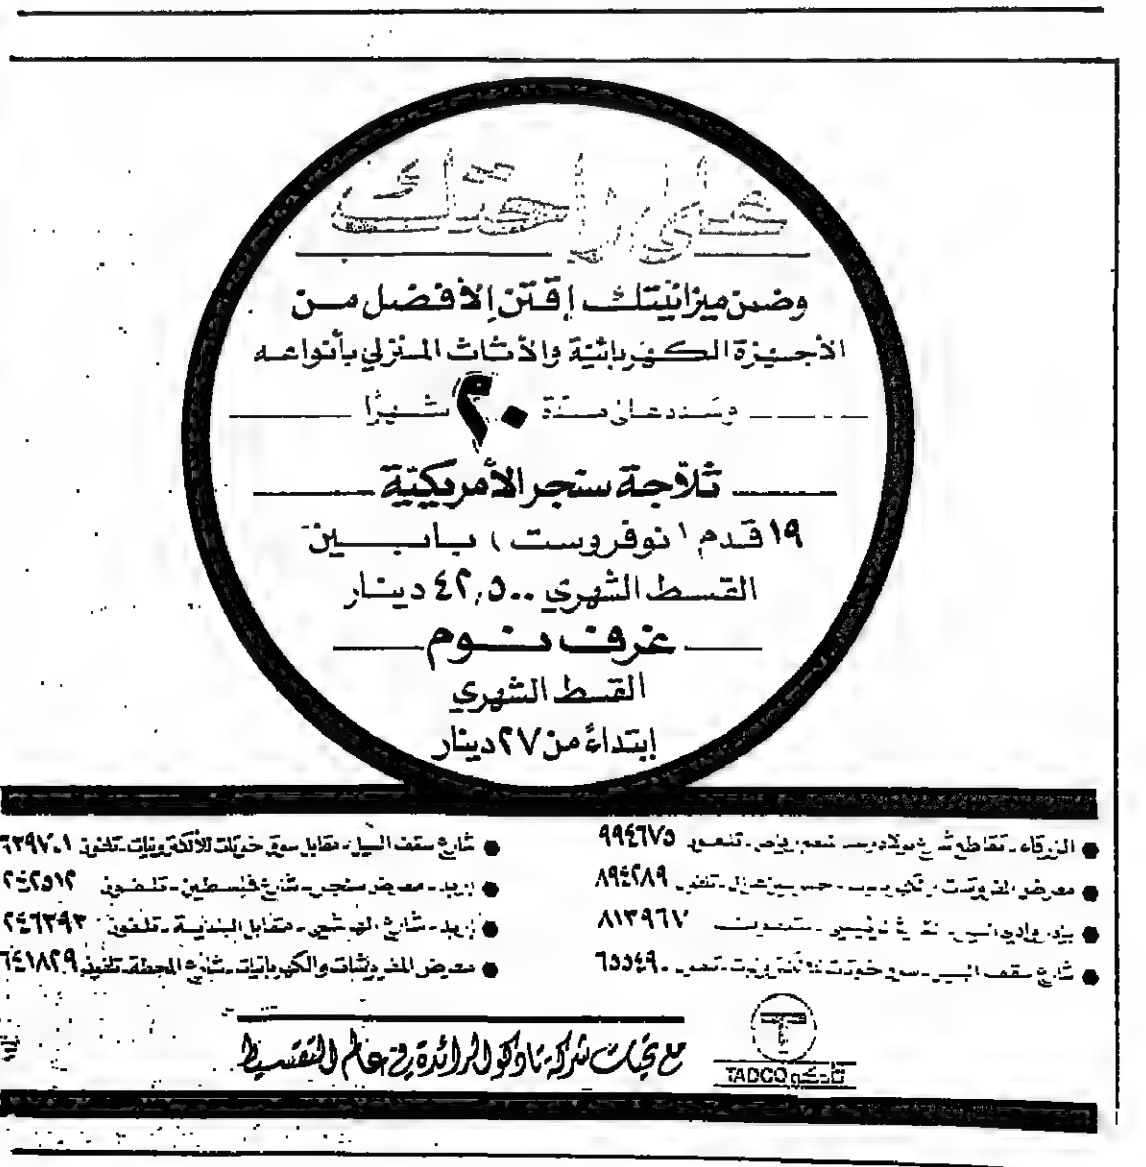 على راحتك
وضمن ميزانيتك إقتن الأفضل من
الأجهزة الكهربائية والأثاث المنزلي بأنواعه
وسدد على مدة ٢٠ شهرًا
ثلاجة سنجر الأمريكية
١٩ قدم (نوفروست) بابين
القسط الشهري ٤٢,٥٠٠ دينار
غرف نوم
القسط الشهري
إبتداءً من ٢٧ دينار
الزرقاء - تقاطع شارع ٩٩٤٦٧٥
معرض المفروشات ٨٩٤٢٨٩
٨١٣٩٦٧
شارع سقف السيل - سوق
شارع سقف السيل - مقابل سوق للألكترونيات - تلفون ٦٣٩٧٠١
إربد - معرض سنجر - شارع فلسطين - تلفون ٢٤٢٥١٢
إربد - شارع الهاشمي - مقابل البلدية - تلفون ٢٤٦٣٩٣
معرض المفروشات والكهربائيات - شارع المحطة - تلفون ٦٤١٨٢٩
مع تحيات شركة تادكو الرائدة في عالم التقسيط
تادكو TADCO